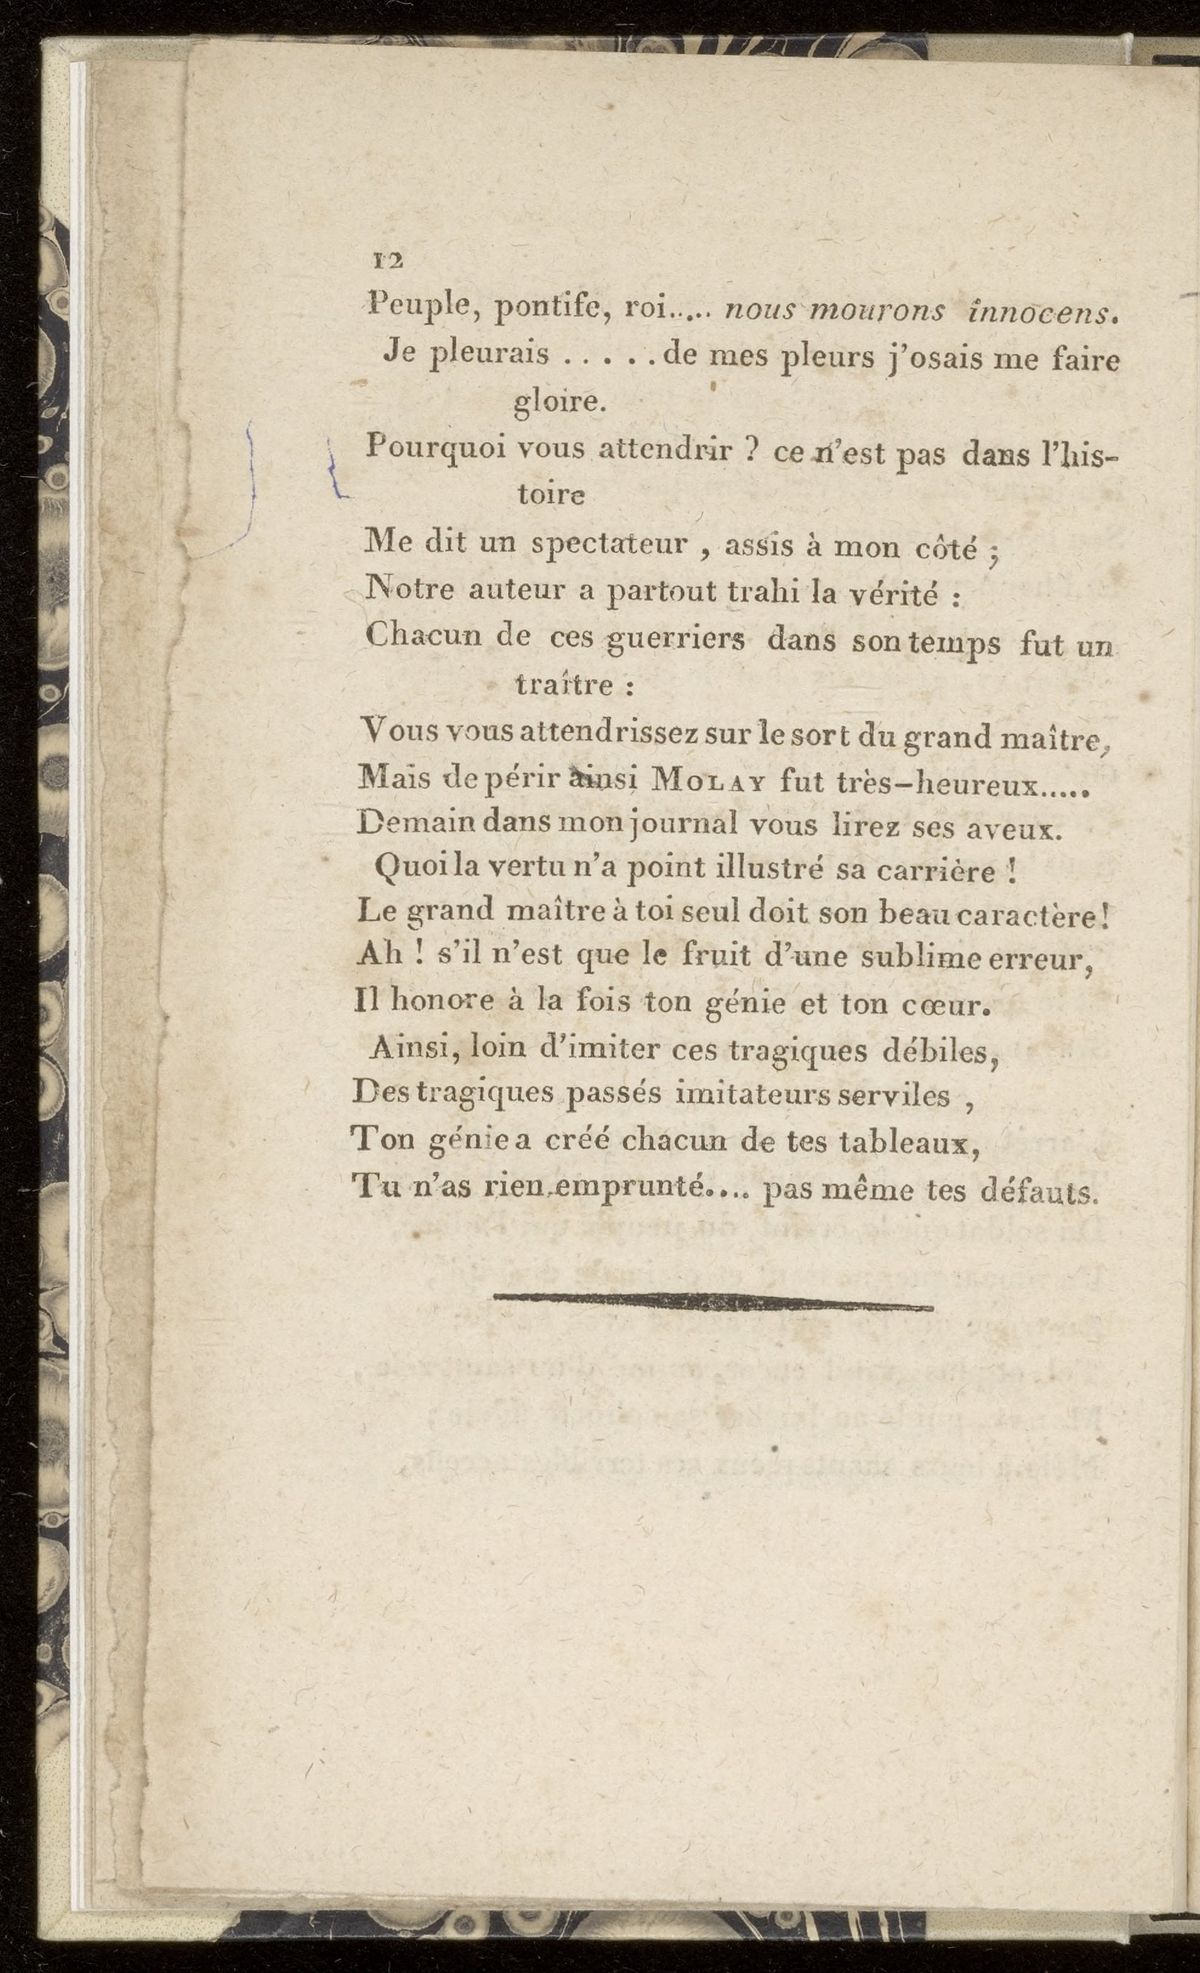 12
Peuple, pontife, roi..... nous mourons innocens.
Je pleurais ..... de mes pleurs j'osais me faire
gloire.
Pourquoi vous attendrir ? ce n'est pas dans l'his-
toire
Me dit un spectateur , assis à mon côté ;
Notre auteur a partout trahi la vérité :
Chacun de ces guerriers dans son temps fut un
traître :
Vous vous attendrissez sur le sort du grand maître,
Mais de périr ainsi MOLAY fut très-heureux.....
Demain dans mon journal vous lirez ses aveux.
Quoi la vertu n'a point illustré sa carrière !
Le grand maître à toi seul doit son beau caractère !
Ah ! s'il n'est que le fruit d'une sublime erreur,
Il honore à la fois ton génie et ton cœur.
Ainsi, loin d'imiter ces tragiques débiles,
Des tragiques passés imitateurs serviles ,
Ton génie a créé chacun de tes tableaux,
Tu n'as rien emprunté.... pas même tes défauts.